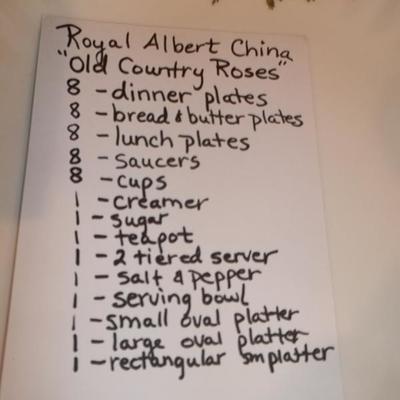 Royal Albert China
"Old Country Roses"
8 - dinner plates
8 - bread & butter plates
8 - lunch plates
8 - saucers
8 - cups
1 - creamer
1 - sugar
1 - teapot
1 - 2 tiered server
1 - salt & pepper
1 - serving bowl
1 - small oval platter
1 - large oval platter
1 - rectangular sm platter